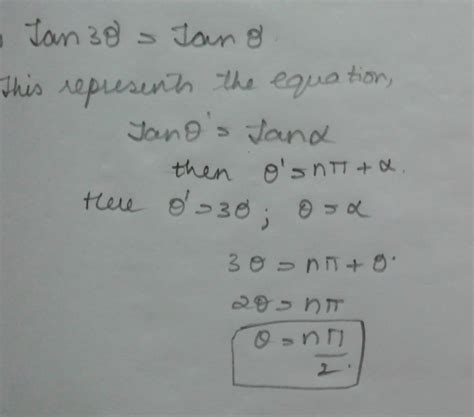 Tan 3θ = Tan θ
This represents the equation,
Tanθ' = Tanα
then θ' = nπ + α.
Here θ' = 3θ ; θ = α
3θ = nπ + θ.
2θ = nπ
θ = nπ/2.